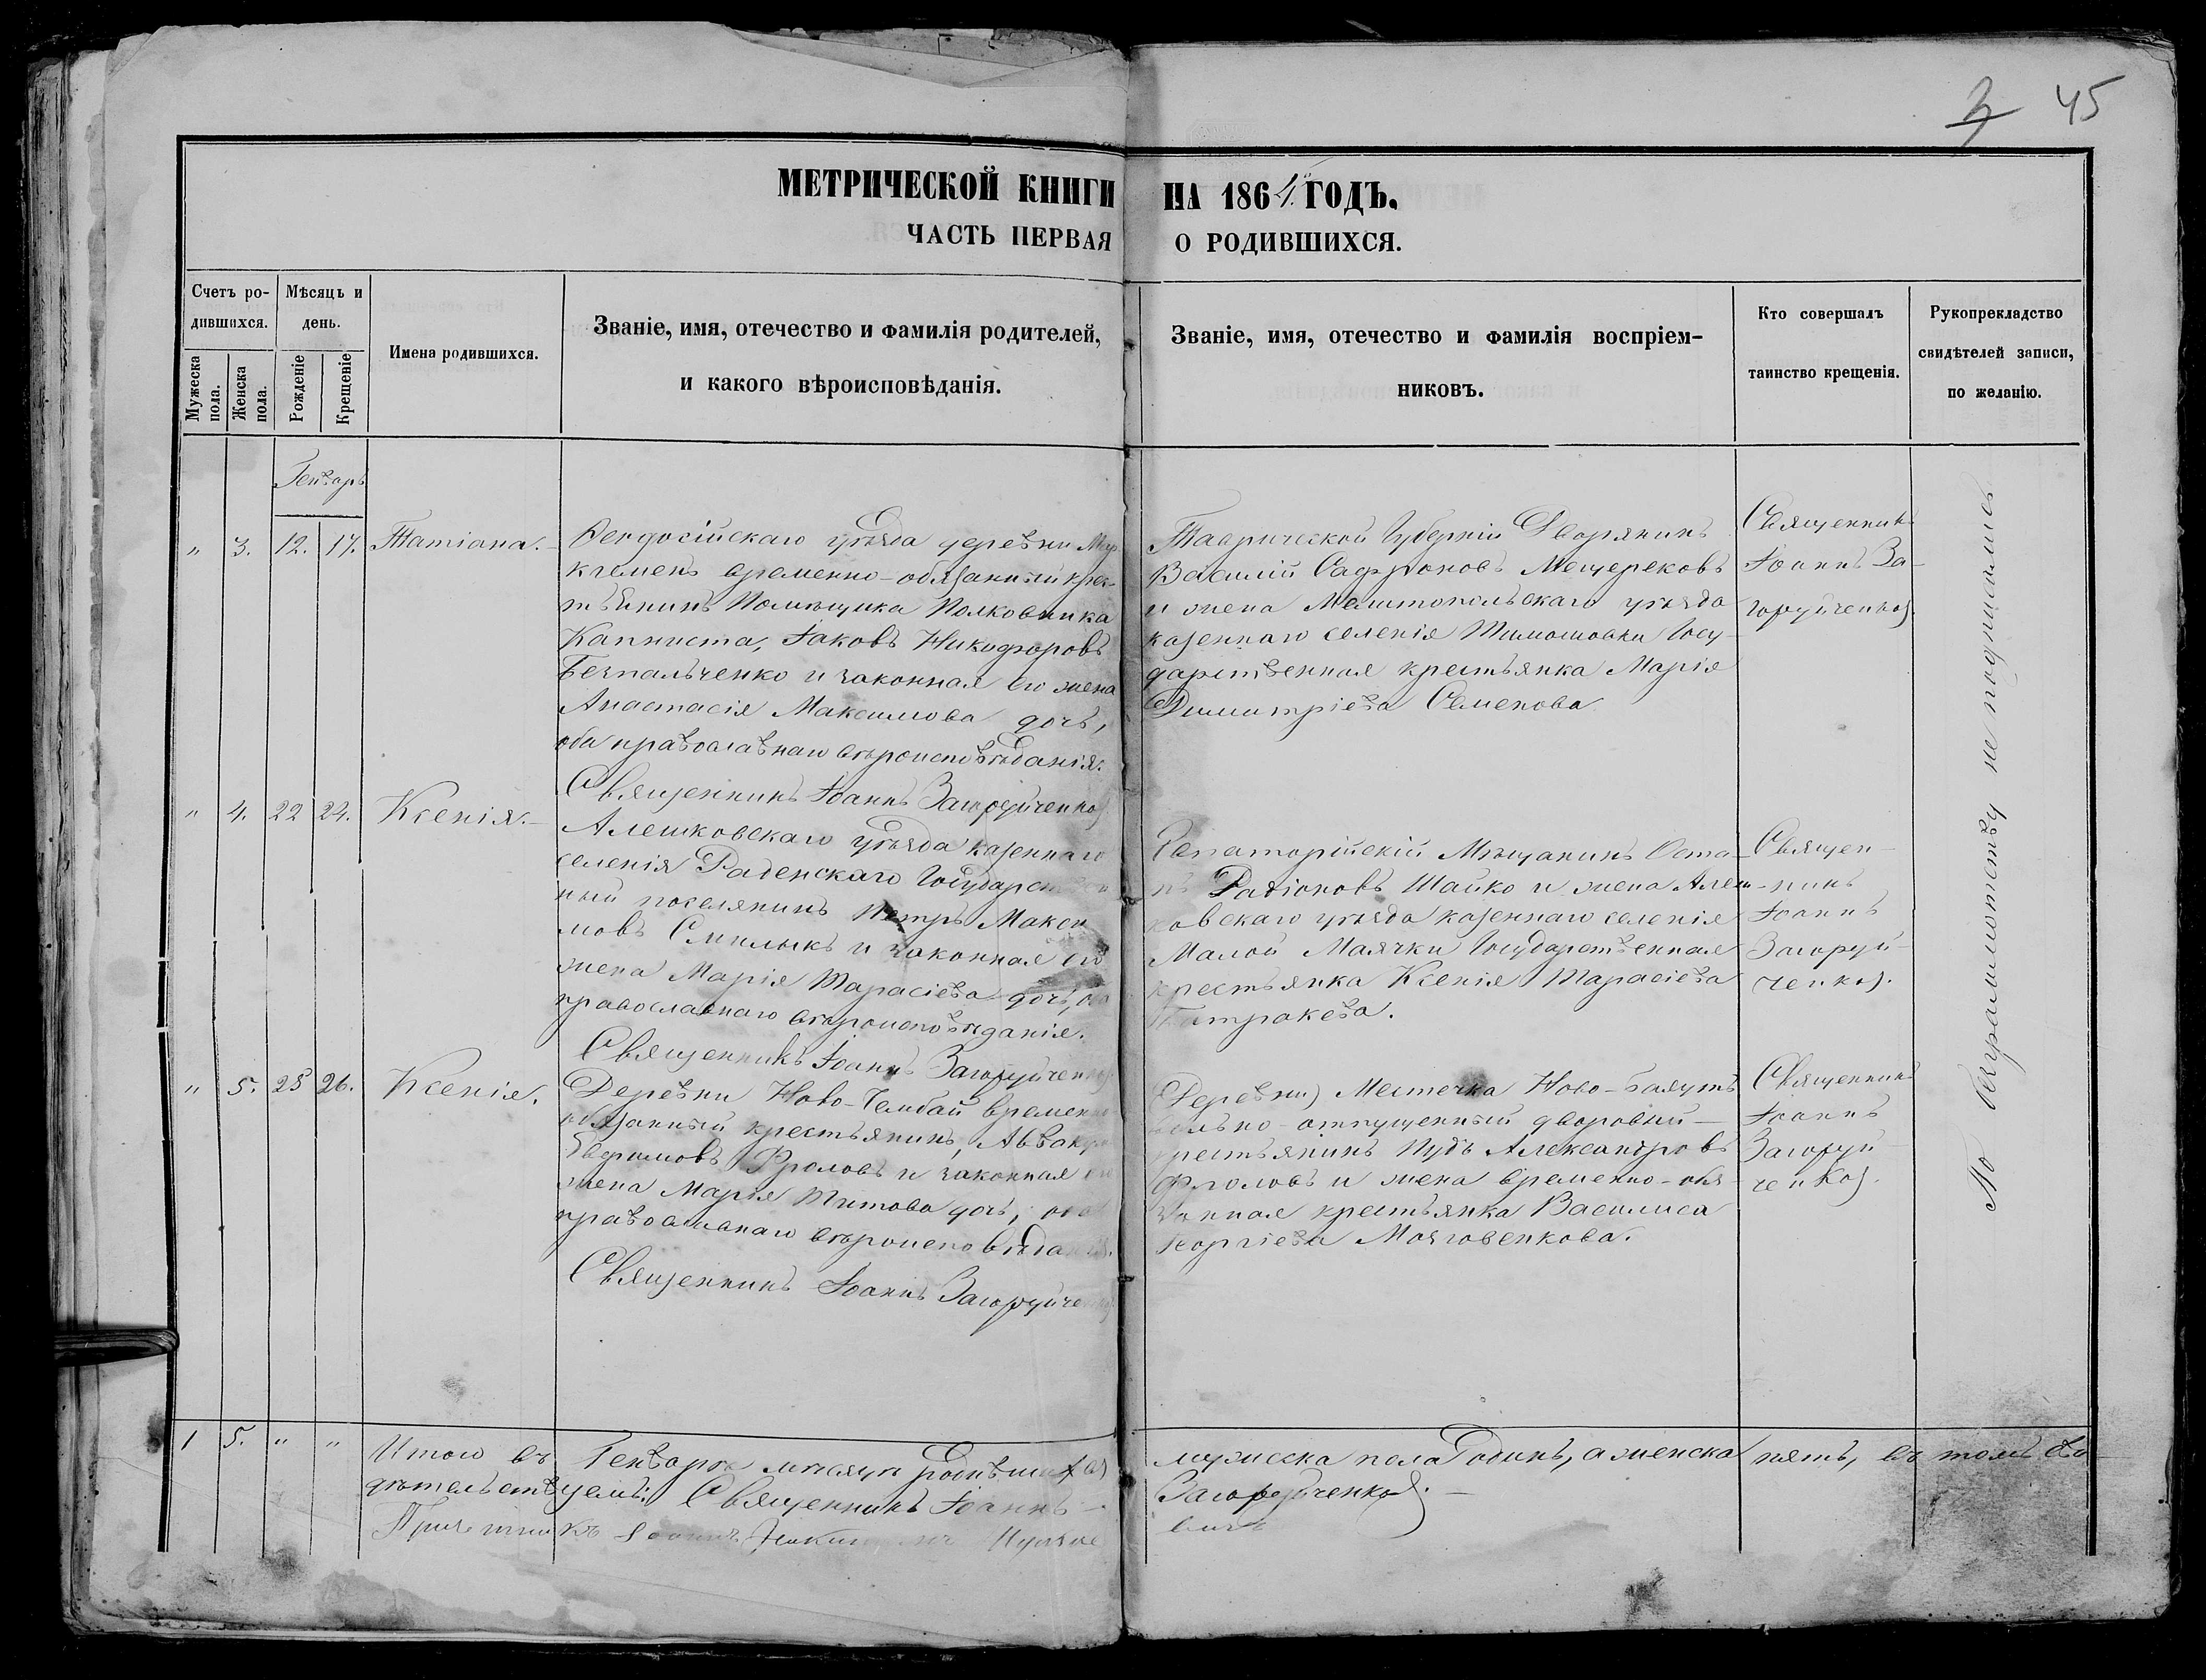 45
МЕТРИЧЕСКОЙ КНИГИ НА 1864 ГОДЪ.
ЧАСТЬ ПЕРВАЯ О РОДИВШИХСЯ.
Счетъ ро-
дившихся.
Мужеска пола.
Женска пола.
Мѣсяцъ и
день.
Рожденіе
Крещеніе
Имена родившихся.
Званіе, имя, отечество и фамилія родителей,
и какого вѣроисповѣданія.
Званіе, имя, отечество и фамилія воспріем-
никовъ.
Кто совершалъ
таинство крещенія.
Рукопрекладство
свидѣтелей записи,
по желанію.
Генварь
" 3. 12. 17. Татіана.
Феодосійскаго уѣзда деревни
кчемень временно-обязанный крес-
тьянинъ Помѣщика Полковника
Капниста, Іаковъ Никифоровъ
Безпальченко и законная его жена
Анастасія Максимова дочь,
оба православнаго вѣроисповѣданія.
Священникъ Іоаннъ Загоруйченко
Таврической Губерніи Дворянинъ
Василій Сафроновъ Мещерековъ
и жена Мелитопольскаго уѣзда
казеннаго селенія Тимошовки Госу-
дарственная крестьянка Марія
Димитріева Семенова
Священникъ
Іоаннъ За-
горуйченко
" 4. 22 24. Ксенія.
Алешковскаго уѣзда казеннаго
селенія Раденскаго Государствен
ный поселянинъ Петръ Макси
мовъ Смилыкъ и законная его
жена Марія Тарасіева дочь, оба
православнаго вѣроисповѣданія.
Священникъ Іоаннъ Загоруйченко
Евпаторійскій Мѣщанинъ Оста-
пъ Радіоновъ Шайко и жена Алеш-
ковскаго уѣзда казеннаго селенія
Малой Маячки Государственная
крестьянка Ксенія Тарасіева
Патракева.
Священ-
никъ
Іоаннъ
Загоруй-
ченко.
" 5. 25 26. Ксенія.
Деревни Ново-Чембай временно
обязанный крестьянинъ,
Евфимовъ Фроловъ и законная его
жена Марія Титова дочь, оба
православнаго вѣроисповѣданія.
Священникъ Іоаннъ Загоруйченко
Деревни) Местечка Ново-Баяутъ
вольно-отпущенный дворовый
крестьянинъ Пудъ Александровъ
Фроловъ и жена временно-обя-
занная крестьянка Василиса
Георгіева Мозговенкова.
Священникъ
Іоаннъ
Загоруй
ченко.
По безграммотству не подписались
1 5. " " Итого въ Генварѣ мѣсяцѣ родившихся мужеска пола Одинъ, а женска пять, въ томъ сви-
дѣтельствуемъ: Священникъ Іоаннъ Загоруйченко.
Причетникъ Іоаннъ